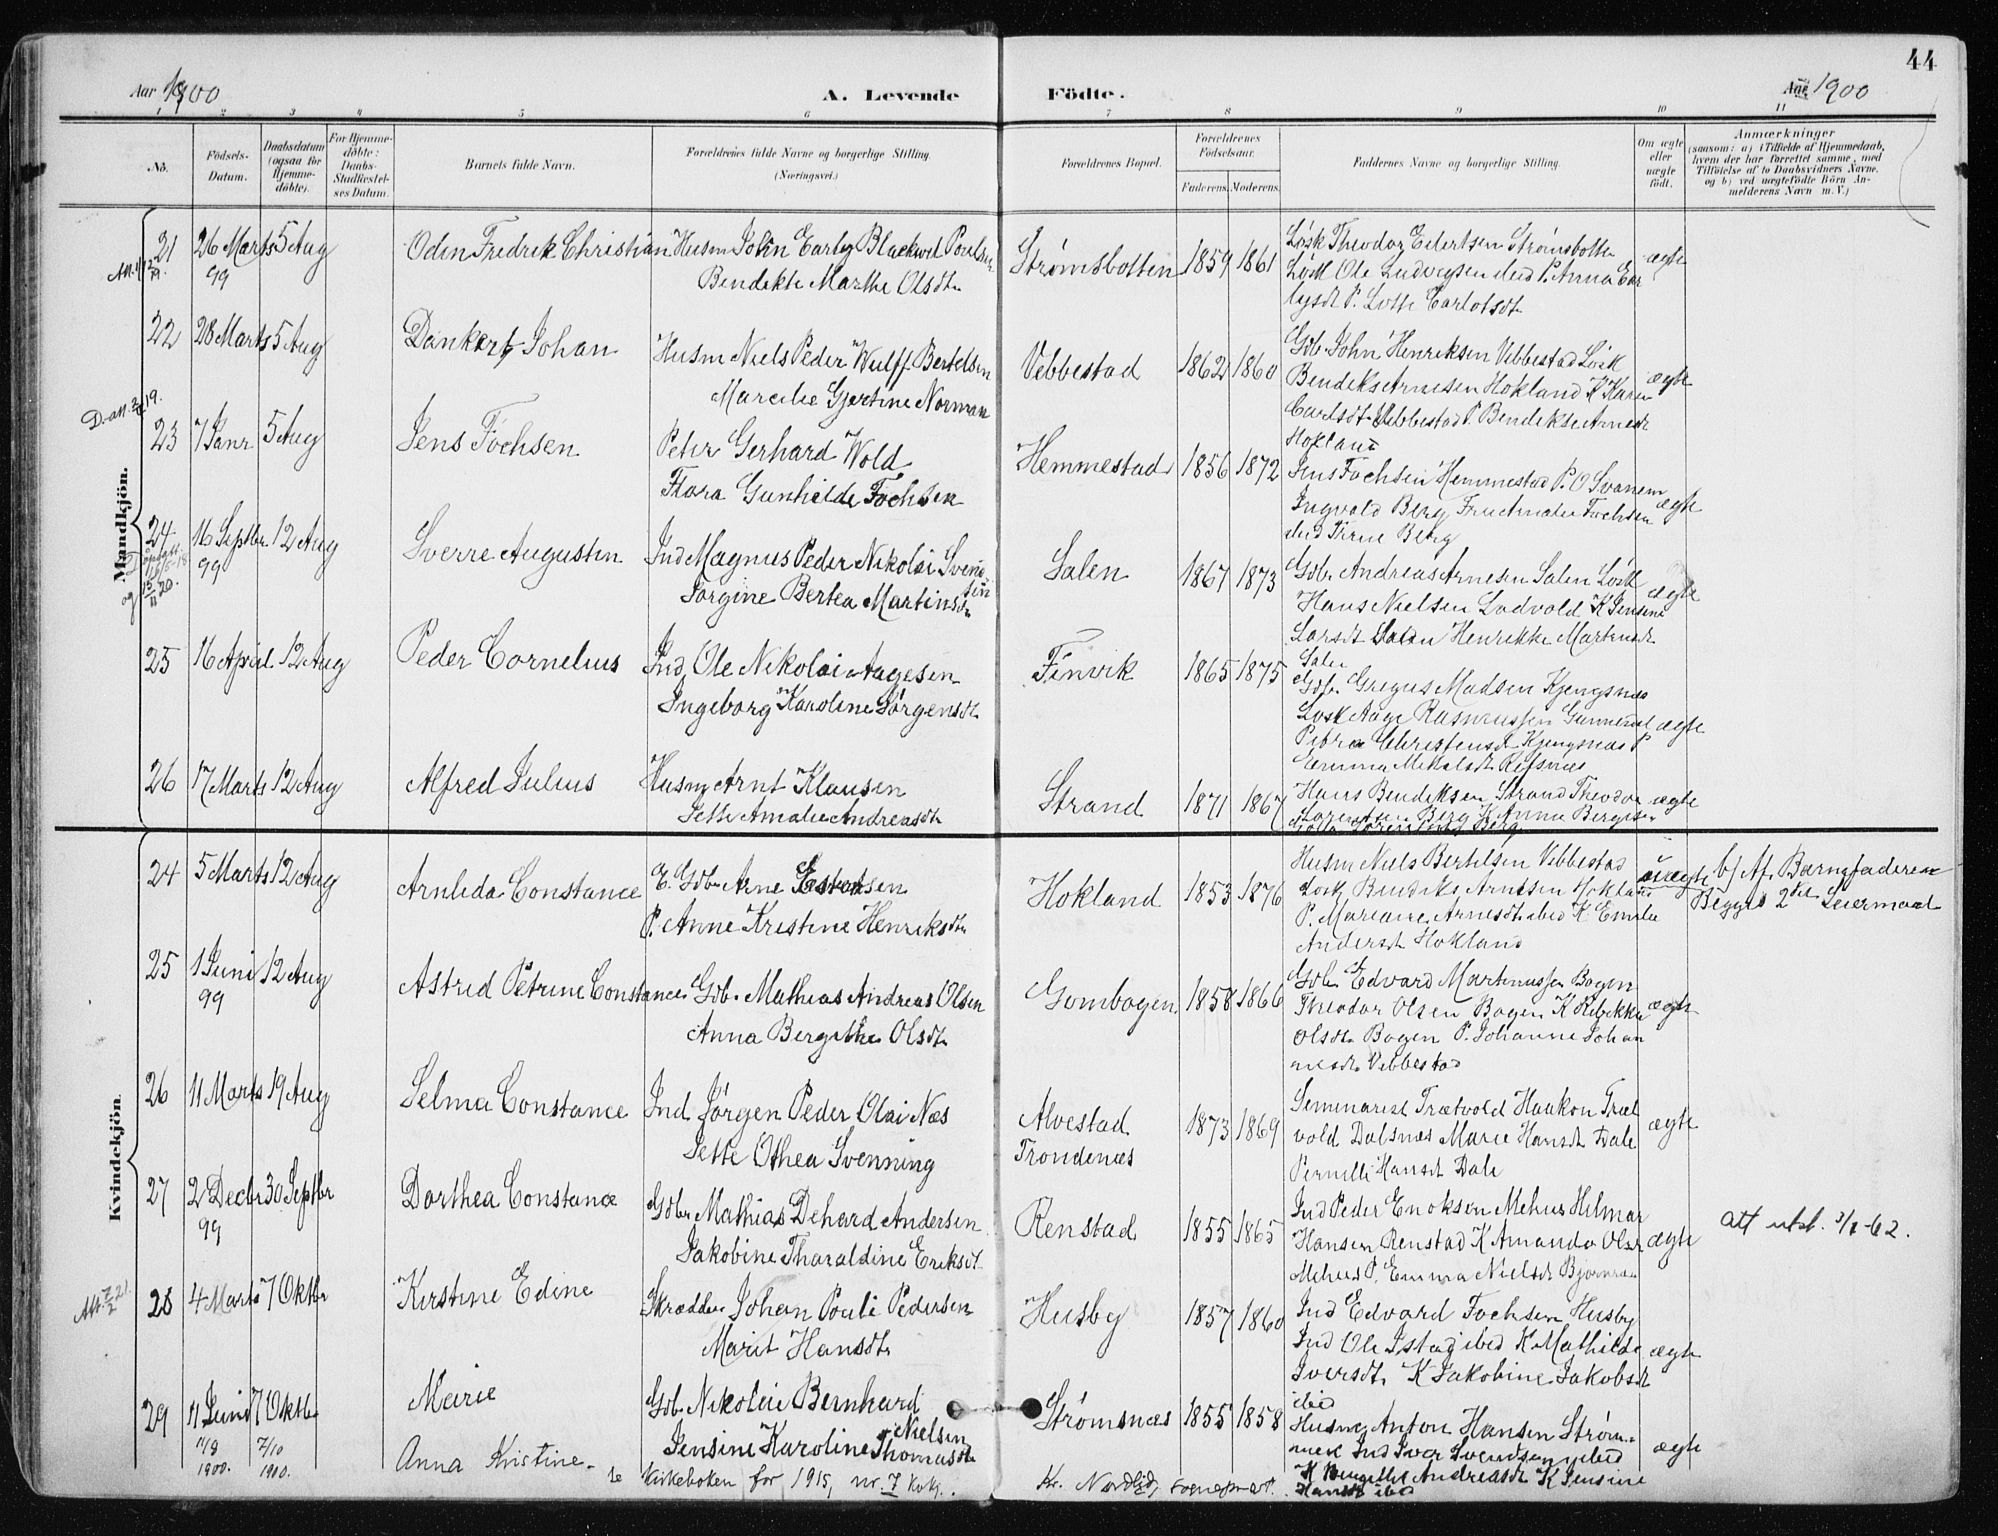 44
Aar 1900
A. Levende
Födte.
Aar 1900
1 2 3 4 5 6 7 8 9 10 11
No.
Födsels-Datum.
Daabsdatum (ogsaa for Hjemmedöbte).
For Hjemmedöbte: Daabs-Stadfæstelses Datum.
Barnets fulde Navn.
Forældrenes fulde Navne og borgerlige Stilling. (Næringsvei.)
Forældrenes Bopæl.
Forældrenes Födselsaar.
Faderens. Moderens.
Faddernes Navne og borgerlige Stilling.
Om ægte eller uægte födt.
Anmærkninger
(saasom: a) i Tilfælde af Hjemmedaab, hvem der har forrettet samme, med Tilföielse af to Daabsvidners Navne, og b) ved uægtefödte Börn Anmelderens Navn m. V.)
Mandkjön.
21 26 Marts 99 5 Aug Odin Fredrik Christian
Husm John Carley Blackwel Poulsen
Bendikte Marthe Olsdtr
Strømsbotten 1859 1861
Løsk Theodor Edertsen Strømsbotten
Løsk Ole Ludvigsen ibid P. Anna Car
lysdt P. Lotte Carlotsdt
ægte
22 28 Marts 5 Aug Dankert Johan
Husm Niels Peder Wulff Bertelsen
Marcilie Gjertine Norman
Vebbestad 1862 1860
Gdb. John Henriksen Vebbestad Løsk
Bendiks Arnesen Hokland K Karen
Carlsdt Vebbestad P. Bendikte Arnesdt
Hokland
ægte
23 7 Janr 5 Aug Jens Fochsen
Peter Gerhard Wold
Flora Gunhilde Fochsen
Hemmestad 1856 1872
Jens Fochsen Hemmestad P. O Svanem
Ingvald Berg Fru Amalie Fochsen
ibid Berg
ægte
24 16 Septbr 99 12 Aug Sverre Augustin
Ind Magnus Peder Nikolai Svendsen
Jørgine Bertea Martinsdt
Salen 1867 1873
Gdb. Andreas Arnesen Salen Løsk
Hans Nielsen Lodvold K Jensine
Larsdt Salen Henrikke Martinsdt
Salen
ægte
25 16 April 12 Aug Peder Cornelius
Ind Ole Nikolai Aagesen
Ingeborg Karoline Jörgensdt
Finvik 1865 1875
Gdb. Gregus Madsen Kjengsnæs
Løsk Aage Rasmussen
Petra Christensdt Kjengsnæs P
Emma Mikalsdt Refsnæs
ægte
26 17 Marts 12 Aug Alfred Julius
Husm Arnt Klausen
Jette Amalie Andreasdt
Strand 1871 1867
Hans Bendiksen Strand Theodor
Lorentsen Berg K Anna Bergersen
ægte
Kvindekjön.
24 5 Marts 12 Aug Arnleda Constance
E. Gdb. Arne
P. Anne Kristine Henriksdtr
Hokland 1853 1876
Husm Niels Bertelsen Vebbestad
Løsk Bendiks Arnesen Hokland
P. Mariane Arnesdt ibid K Emilie
Andersdt Hokland
uægte
b/ Af Barnefaderen
Begges 2det Leiermaal
25 1 Juni 99 12 Aug Astrid Petrine Constance
Gdb. Mathias Andreas Olsen
Anna Bergithe Olsdt
Gombogen 1858 1866
Gdb Edvard Martinussen Bogen
Theodor Olsen Bogen K Rebekka
Olsdt Bogen P. Johanne Johan
nesdt Vebbestad
ægte
26 11 Marts 19 Aug Selma Constance
Ind Jørgen Peder Olai Næs
Jette Othea Svenning
Alvestad
Trondenæs
1873 1869
Seminarist Trætvold Haakon Træt
vold Dalsnæs Marie Hansdt Dale
Pernille Hansdt Dale
ægte
27 2 Decbr 99 30 Septbr Dorthea Constance
Gdbr Mathias Dehard Andersen
Jakobine Tharaldine Eriksdt
Renstad 1855 1865
Ind Peder Enoksen Mehus Hilmar
Hansen Renstad K Amanda Olsdt
Mehus P. Emma Nielsdt
ægte
att utst. 3/1-62.
28 4 Marts 7 Oktbr Kirstine Edine
Skrædder Johan Pouli Pedersen
Marit Hansdt
Husby 1857 1860
Ind Edvard Fochsen Husby
Ind Ole Istad ibid K Mathilde
Iversdt K Jakobine Jakobsdt
ibid
ægte
29 11 Juni 7 Oktbr Marie
Gdb. Nikolai Bernhard Nielsen
Jensine Karoline Thomasdt
Strømsnæs 1855 1858
Husm Anton Hansen Strøm-
snæs Ind Iver Svendsen ibid
K Bergitte Andreasdt K Jensine
Hansdt ibid
ægte
1900. 7/10 1900.
Anna Kristine - se Kirkeboken for 1915, nr. 7 kvk.
Kr. Nordlid, sogneprest.